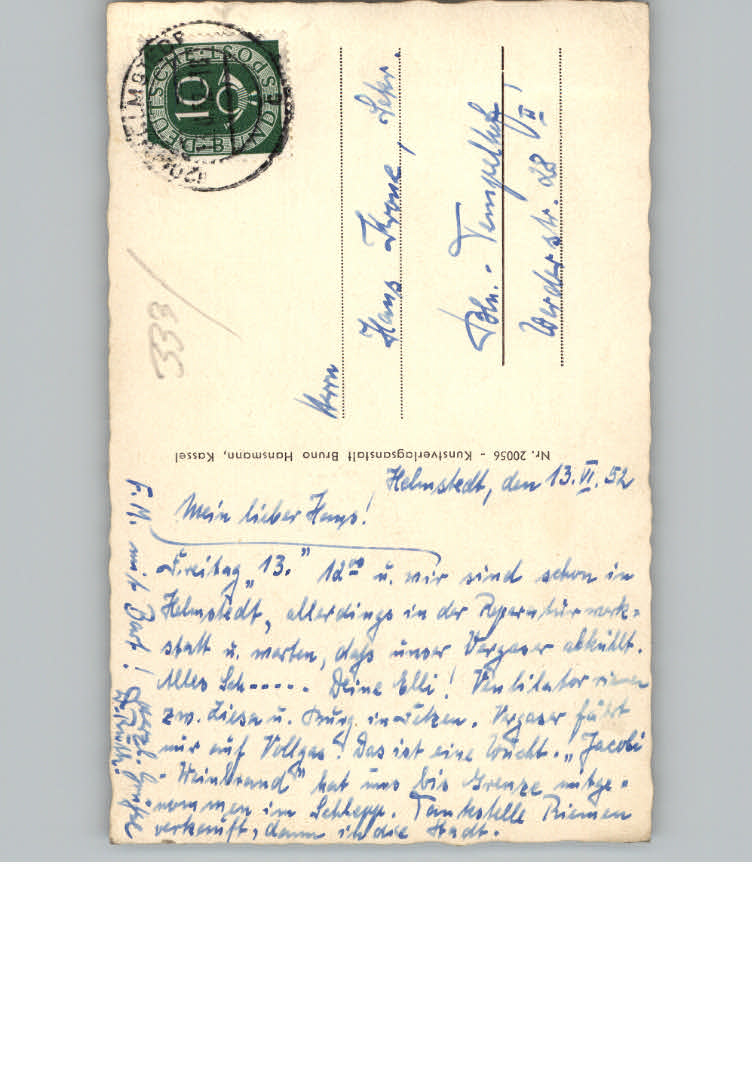 DEUTSCHE BUNDESPOST
10
333
Herrn
Hans Krone, Lehr.
Bln.-Tempelhof
Werderstr. 28 II
Nr. 20056 - Kunstverlagsanstalt Bruno Hansmann, Kassel
Helmstedt, den 13.VI.52
Mein lieber Hans!
Freitag „13.“ 12⁰⁰ u. wir sind schon in
Helmstedt, allerdings in der Reperaturwerk-
statt u. warten, dass unser Vergaser abkühlt.
Alles Sch..... Deine Elli! Ventilatorriemen
zw. Ziesa u. Burg in Fetzen. Vergaser fährt
nur auf Vollgas! Das ist eine Wucht. „Jacobi
- Weinbrand“ hat uns bis Grenze mitge-
nommen im Schlepp. Tankstelle Riemen
verkauft, dann in die Stadt.
F. M. mit Bart!
Herzl.